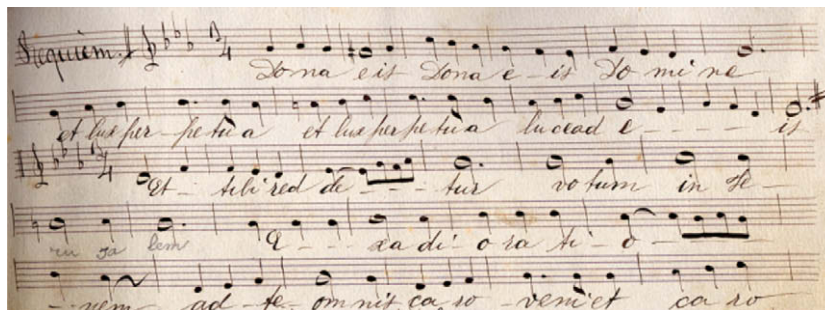 Requiem. 3 4
Dona eis Dona e-is Do mi ne
et lux per-petua et lux perpetua lucead e - - - - is
3 4
Et - tibi red de - - - tur votum in Je -
ru sa lem E - - - xa di - o ra ti - o - - - -
- - nem ad - te omnis ca ro - veniet ca ro